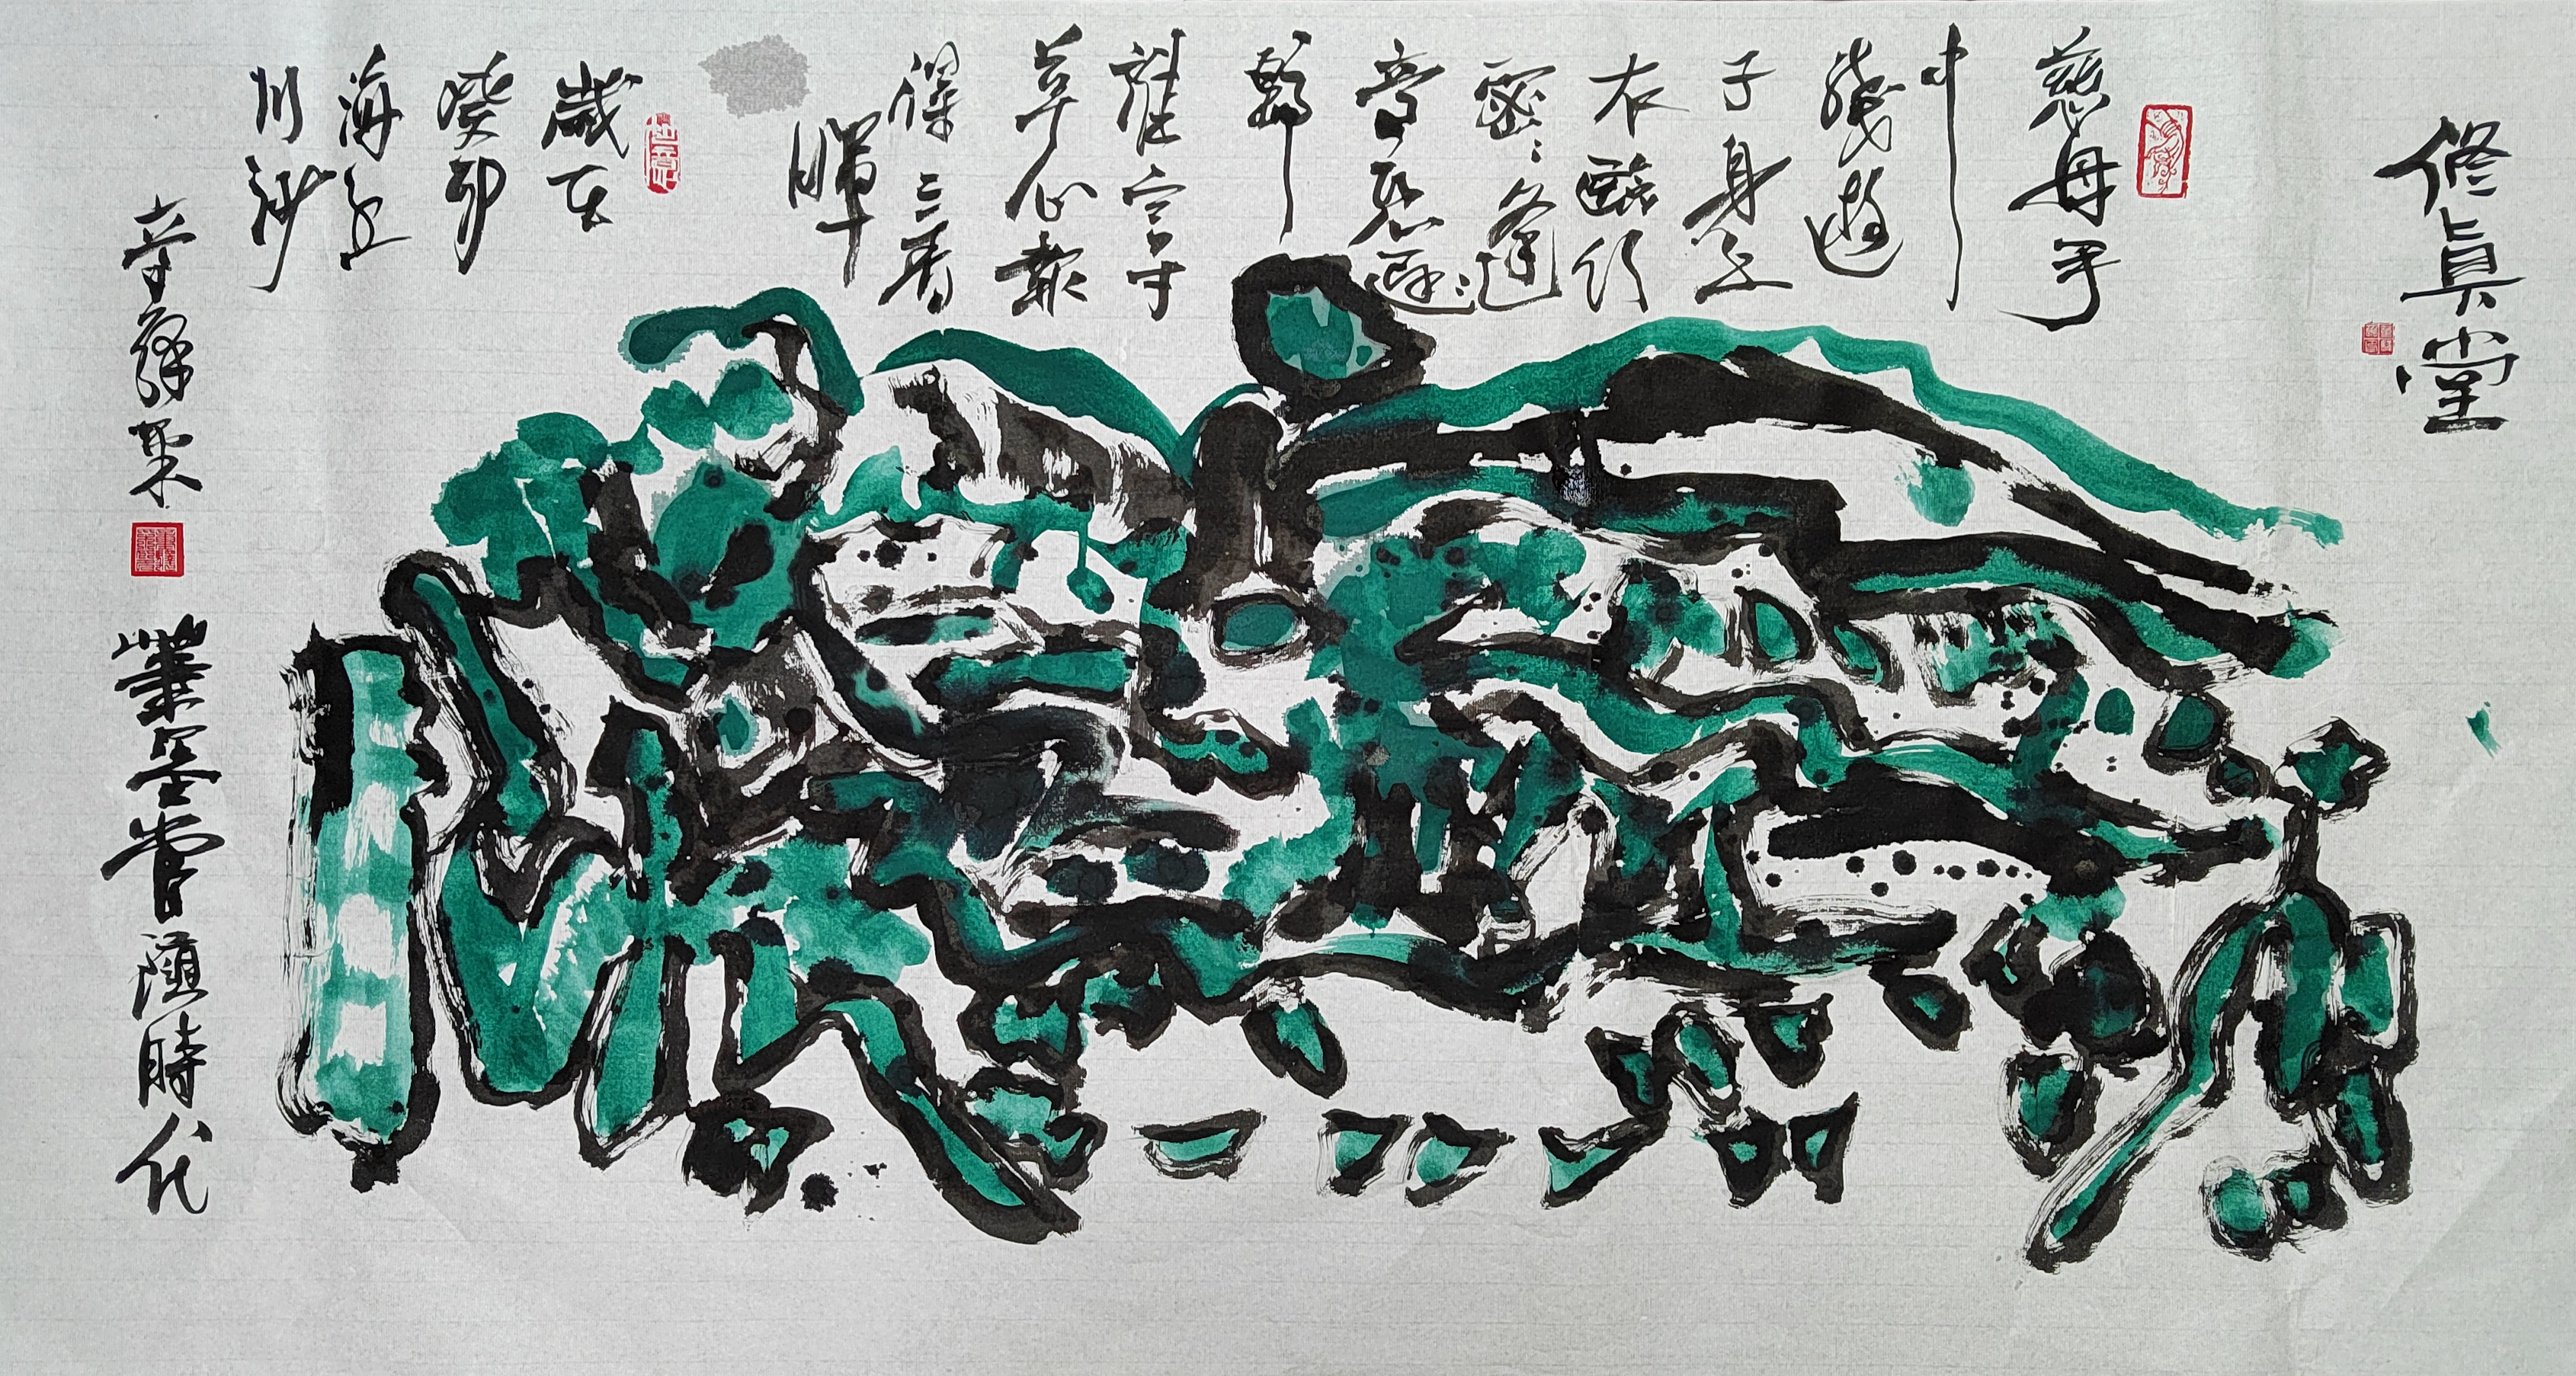 修真堂
慈母手
中
綫遊
子身上
衣臨行
密:逢
意恐遲:
歸
誰言寸
草心報
得三春
暉
歲在
癸卯
海上
川沙
筆墨當隨時代